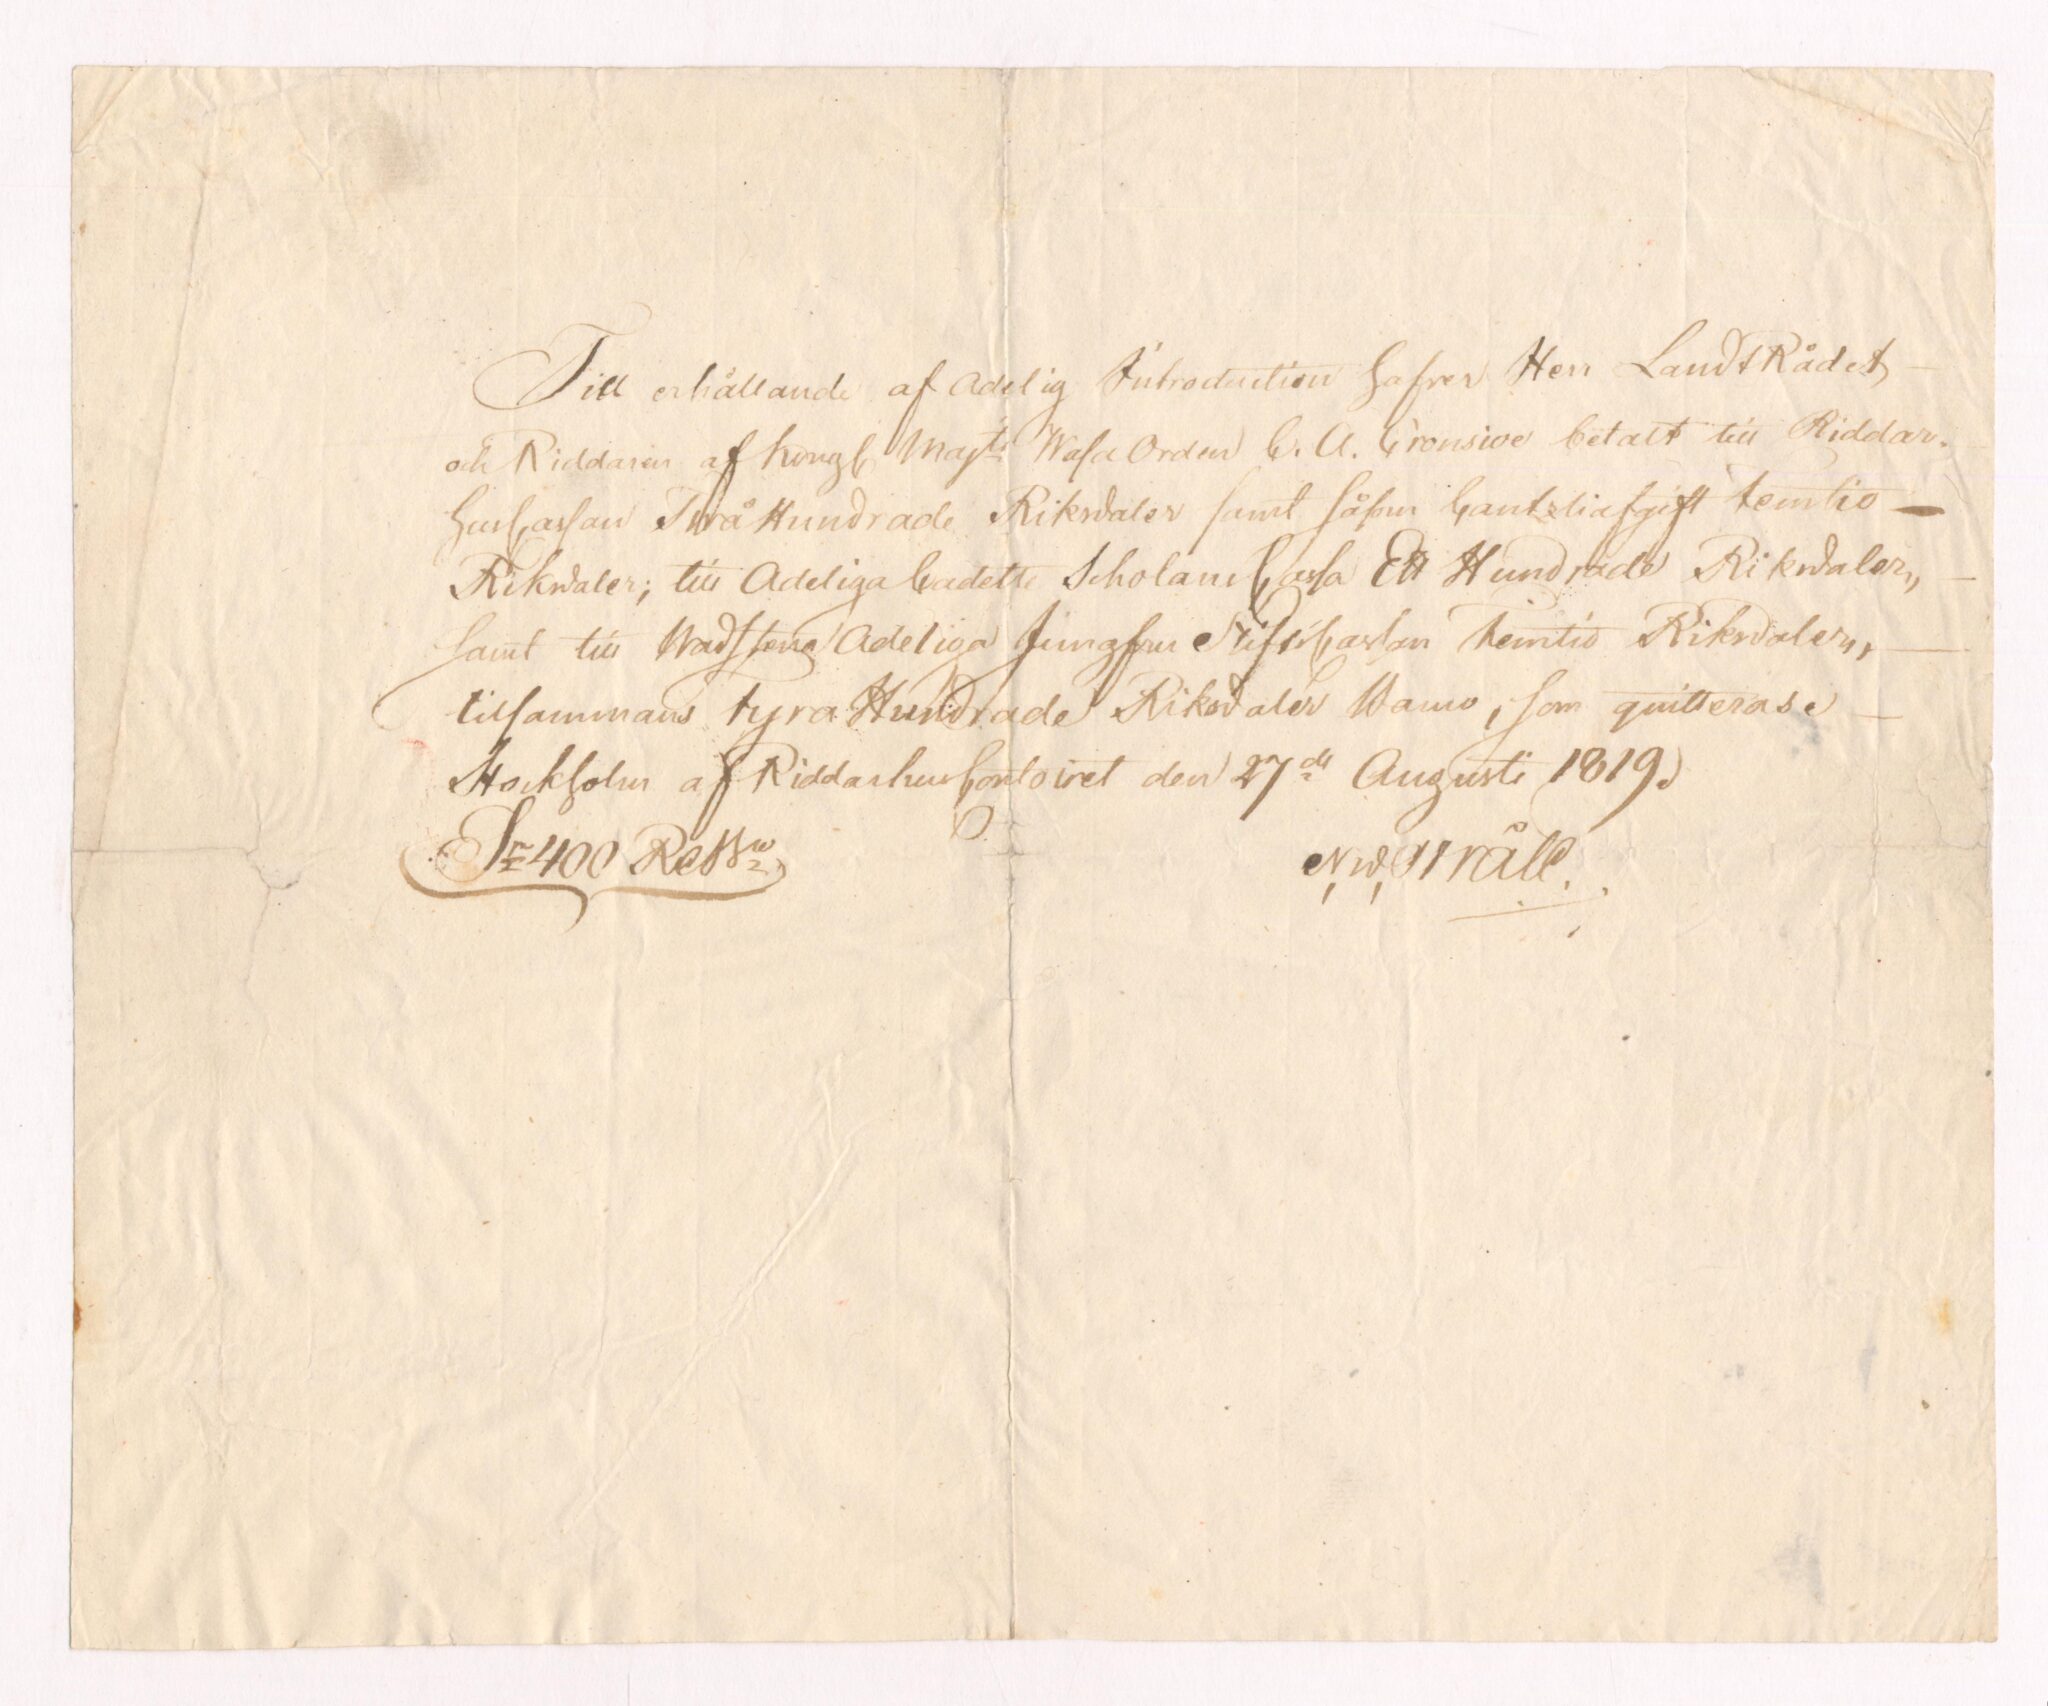 Till erhållande af Adelig Introduction hafver Herr LandtRådet
och Riddaren af Kongl Maj:ts Wasa Orden C. A. Cronsioe betalt till Riddar-
husCassan TwåHundrade Riksdaler samt såsom Cantzliafgift femtio
Riksdaler; till Adeliga Cadette Scholans Cassa Ett Hundrade Riksdaler,
samt till Wadstena Adeliga Jungfru StiftsCassan femtio Riksdaler,
tilsammans fyra Hundrade Riksdaler Banco, som quitteras.
Stockholm af RiddarhusContoiret den 27de Augusti 1819.
Sr 400 Rd Bco
N. W. Stråle.